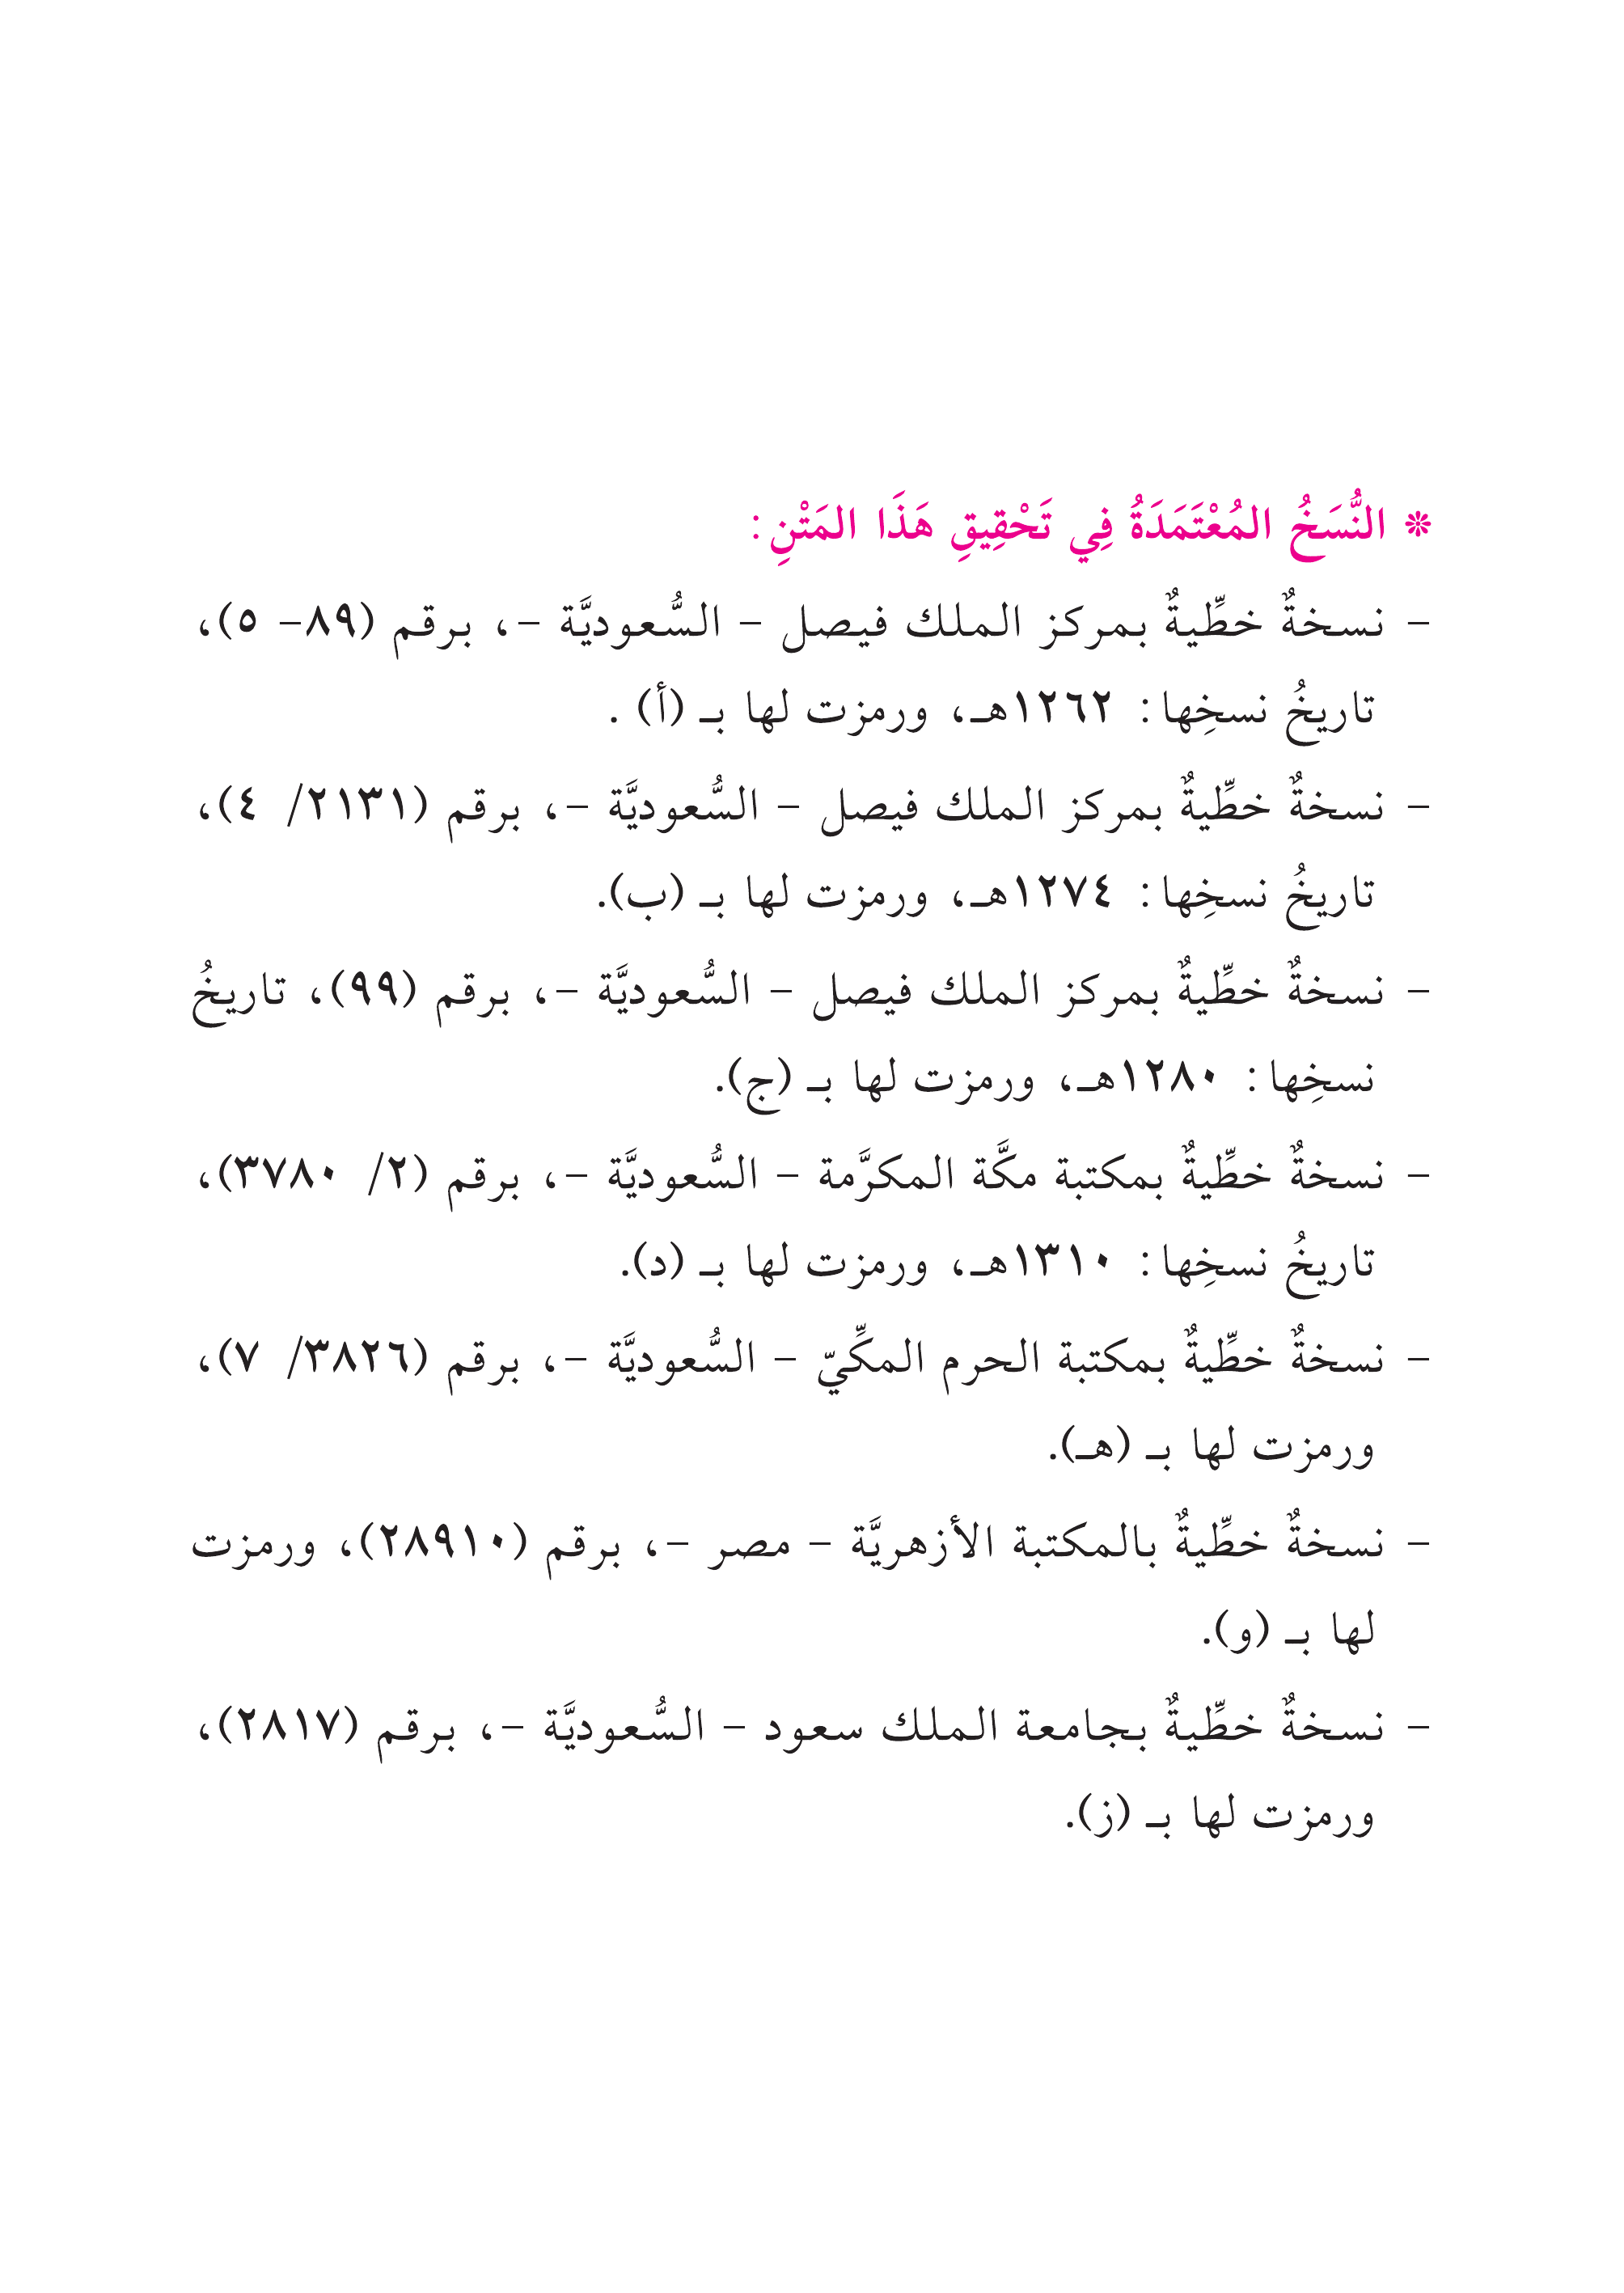 * النُّسَخُ المُعْتَمَدَةُ فِي تَحْقِيقِ هَذَا المَتْنِ:
- نسخةٌ خطِّيةٌ بمركز الملك فيصل - السُّعوديَّة -، برقم (٨٩- ٥)،
تاريخُ نسخِها: ١٢٦٢هـ، ورمزت لها بـ (أ) .
- نسخةٌ خطِّيةٌ بمركز الملك فيصل - السُّعوديَّة -، برقم (٢١٣١/ ٤)،
تاريخُ نسخِها: ١٢٧٤هـ، ورمزت لها بـ (ب).
- نسخةٌ خطِّيةٌ بمركز الملك فيصل - السُّعوديَّة -، برقم (٩٩)، تاريخُ
نسخِها: ١٢٨٠هـ، ورمزت لها بـ (ج).
- نسخةٌ خطِّيةٌ بمكتبة مكَّة المكرَّمة - السُّعوديَّة -، برقم (٢/ ٣٧٨٠)،
تاريخُ نسخِها: ١٣١٠هـ، ورمزت لها بـ (د).
- نسخةٌ خطِّيةٌ بمكتبة الحرم المكِّيّ - السُّعوديَّة -، برقم (٣٨٢٦/ ٧)،
ورمزت لها بـ (هـ).
- نسخةٌ خطِّيةٌ بالمكتبة الأزهريَّة - مصر -، برقم (٢٨٩١٠)، ورمزت
لها بـ (و).
- نسخةٌ خطِّيةٌ بجامعة الملك سعود - السُّعوديَّة -، برقم (٢٨١٧)،
ورمزت لها بـ (ز).